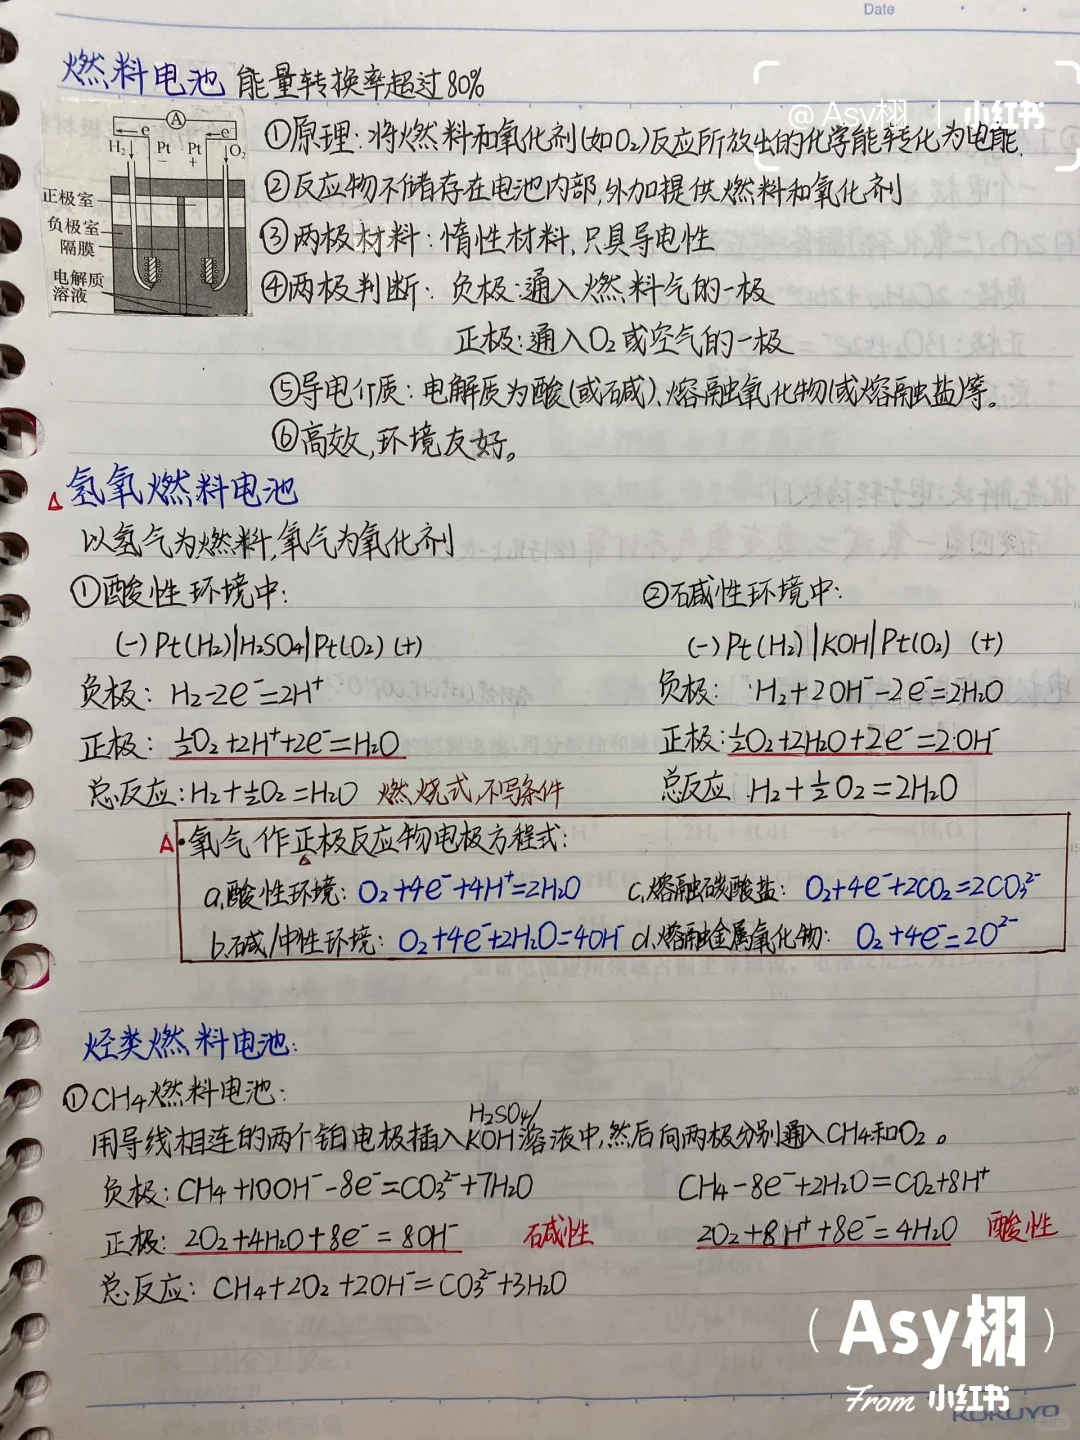 Date
燃料电池 能量转换率超过80%
@Asy栩 | 小红书
A
e⁻ e⁻
H₂ Pt Pt O₂
− +
正极室
负极室
隔膜
电解质
溶液
①原理：将燃料和氧化剂(如O₂)反应所放出的化学能转化为电能.
②反应物不储存在电池内部,外加提供燃料和氧化剂
③两极材料：惰性材料,只具导电性
④两极判断：负极:通入燃料气的一极
正极:通入O₂或空气的一极
⑤导电介质：电解质为酸(或碱)、熔融氧化物(或熔融盐)等。
⑥高效,环境友好。
△氢氧燃料电池
以氢气为燃料,氧气为氧化剂
①酸性环境中:
(−) Pt(H₂)|H₂SO₄|Pt(O₂) (+)
负极：H₂-2e⁻=2H⁺
正极：½O₂+2H⁺+2e⁻=H₂O
总反应:H₂+½O₂=H₂O 燃烧式,不写条件
②碱性环境中:
(−)Pt(H₂)|KOH|Pt(O₂) (+)
负极: H₂+2OH⁻-2e⁻=2H₂O
正极:½O₂+2H₂O+2e⁻=2·OH⁻
总反应 H₂+½O₂=2H₂O
△•氧气作正极反应物电极方程式:
a.酸性环境: O₂+4e⁻+4H⁺=2H₂O c.熔融碳酸盐: O₂+4e⁻+2CO₂=2CO₃²⁻
b.碱/中性环境: O₂+4e⁻+2H₂O=4OH⁻ d.熔融金属氧化物: O₂+4e⁻=2O²⁻
烃类燃料电池:
①CH₄燃料电池:
H₂SO₄/
用导线相连的两个铂电极插入KOH溶液中,然后向两极分别通入CH₄和O₂。
负极:CH₄+10OH⁻-8e⁻=CO₃²⁻+7H₂O CH₄-8e⁻+2H₂O=CO₂+8H⁺
正极: 2O₂+4H₂O+8e⁻=8OH⁻ 碱性 2O₂+8H⁺+8e⁻=4H₂O 酸性
总反应: CH₄+2O₂+2OH⁻=CO₃²⁻+3H₂O
(Asy栩)
From 小红书
KOKUYO